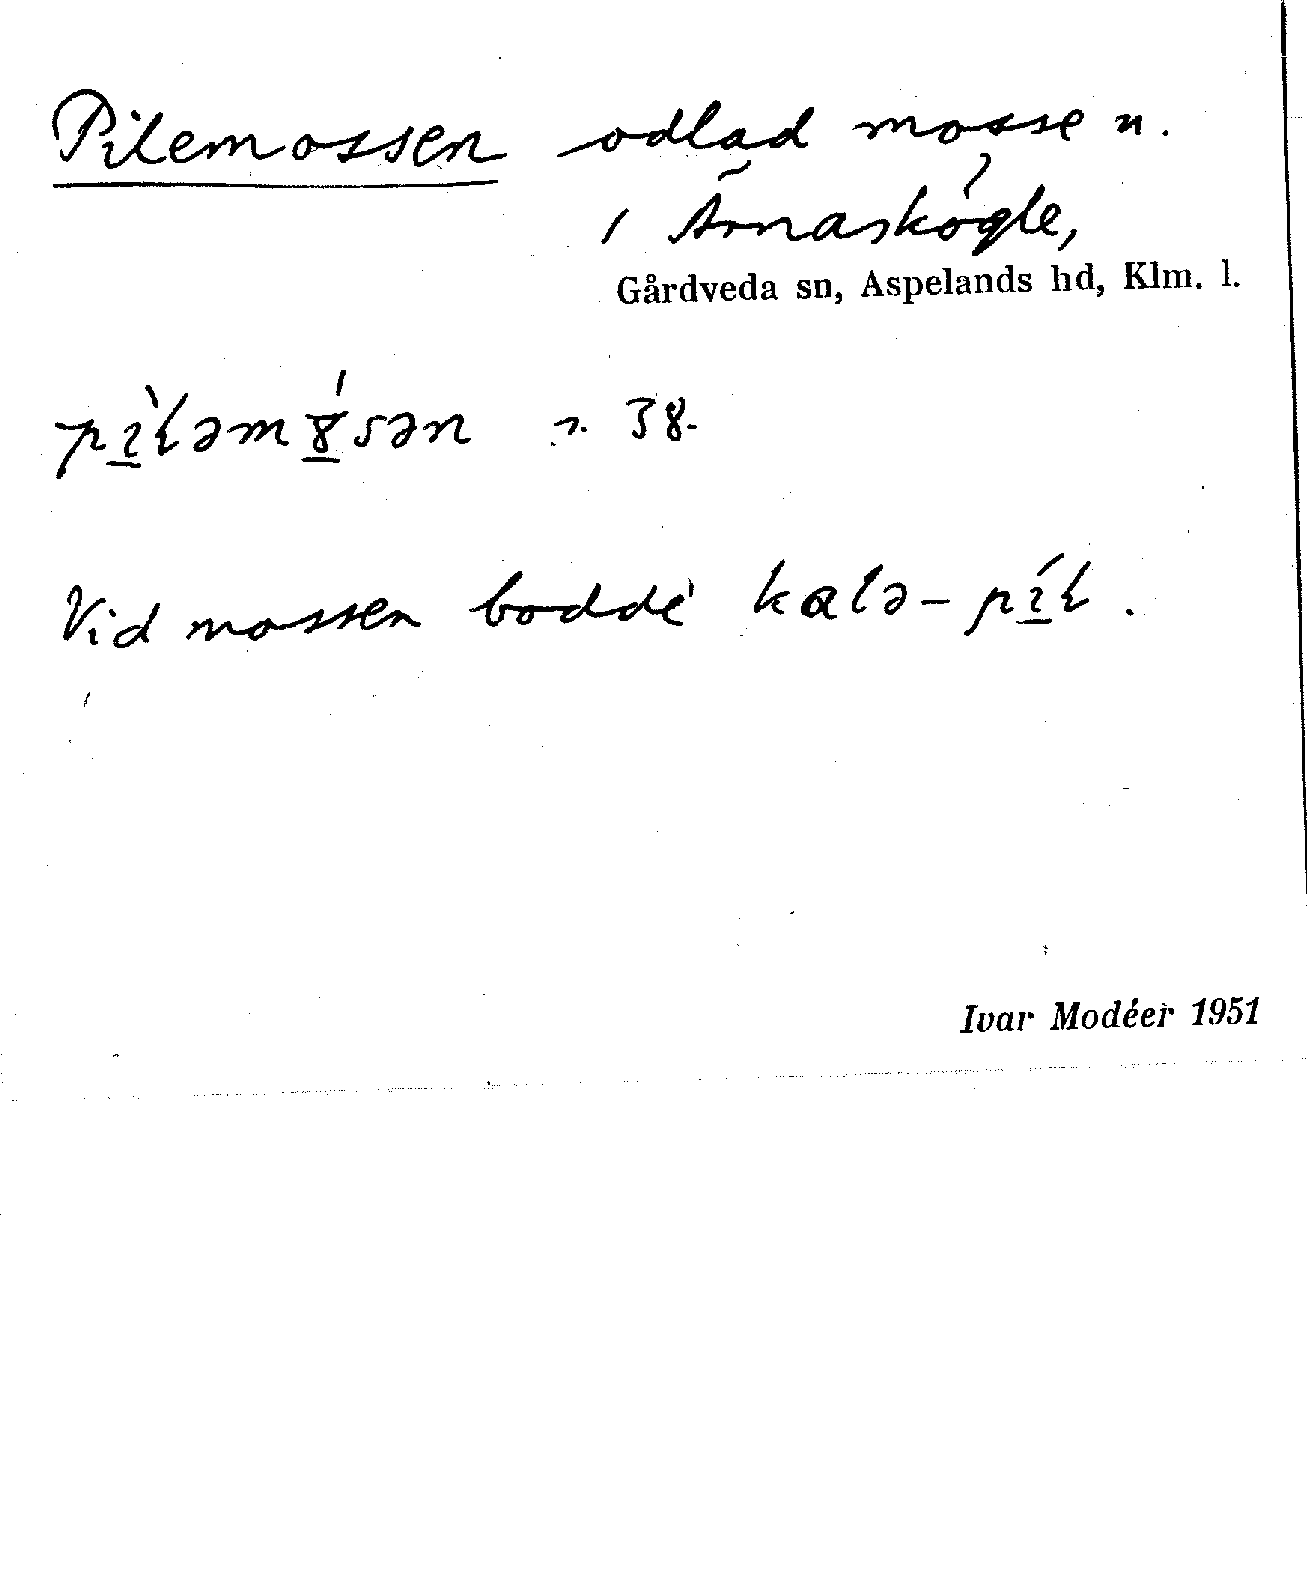 Pilemossen odlad mosse n.
i Årnaskögle,
Gårdveda sn, Aspelands hd, Klm. l.
pìləmɤ́sən r. 38.
Vid mossen bodde kalə-píl.
Ivar Modéer 1951